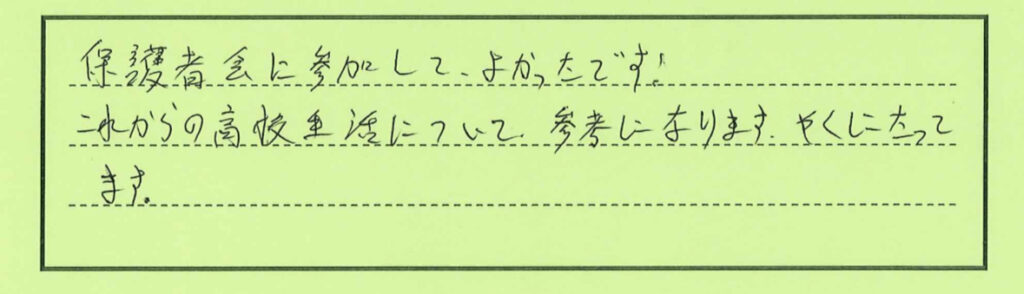 保護者会に参加して、よかったです!
これからの高校生活について、参考になります。やくにたって
ます。